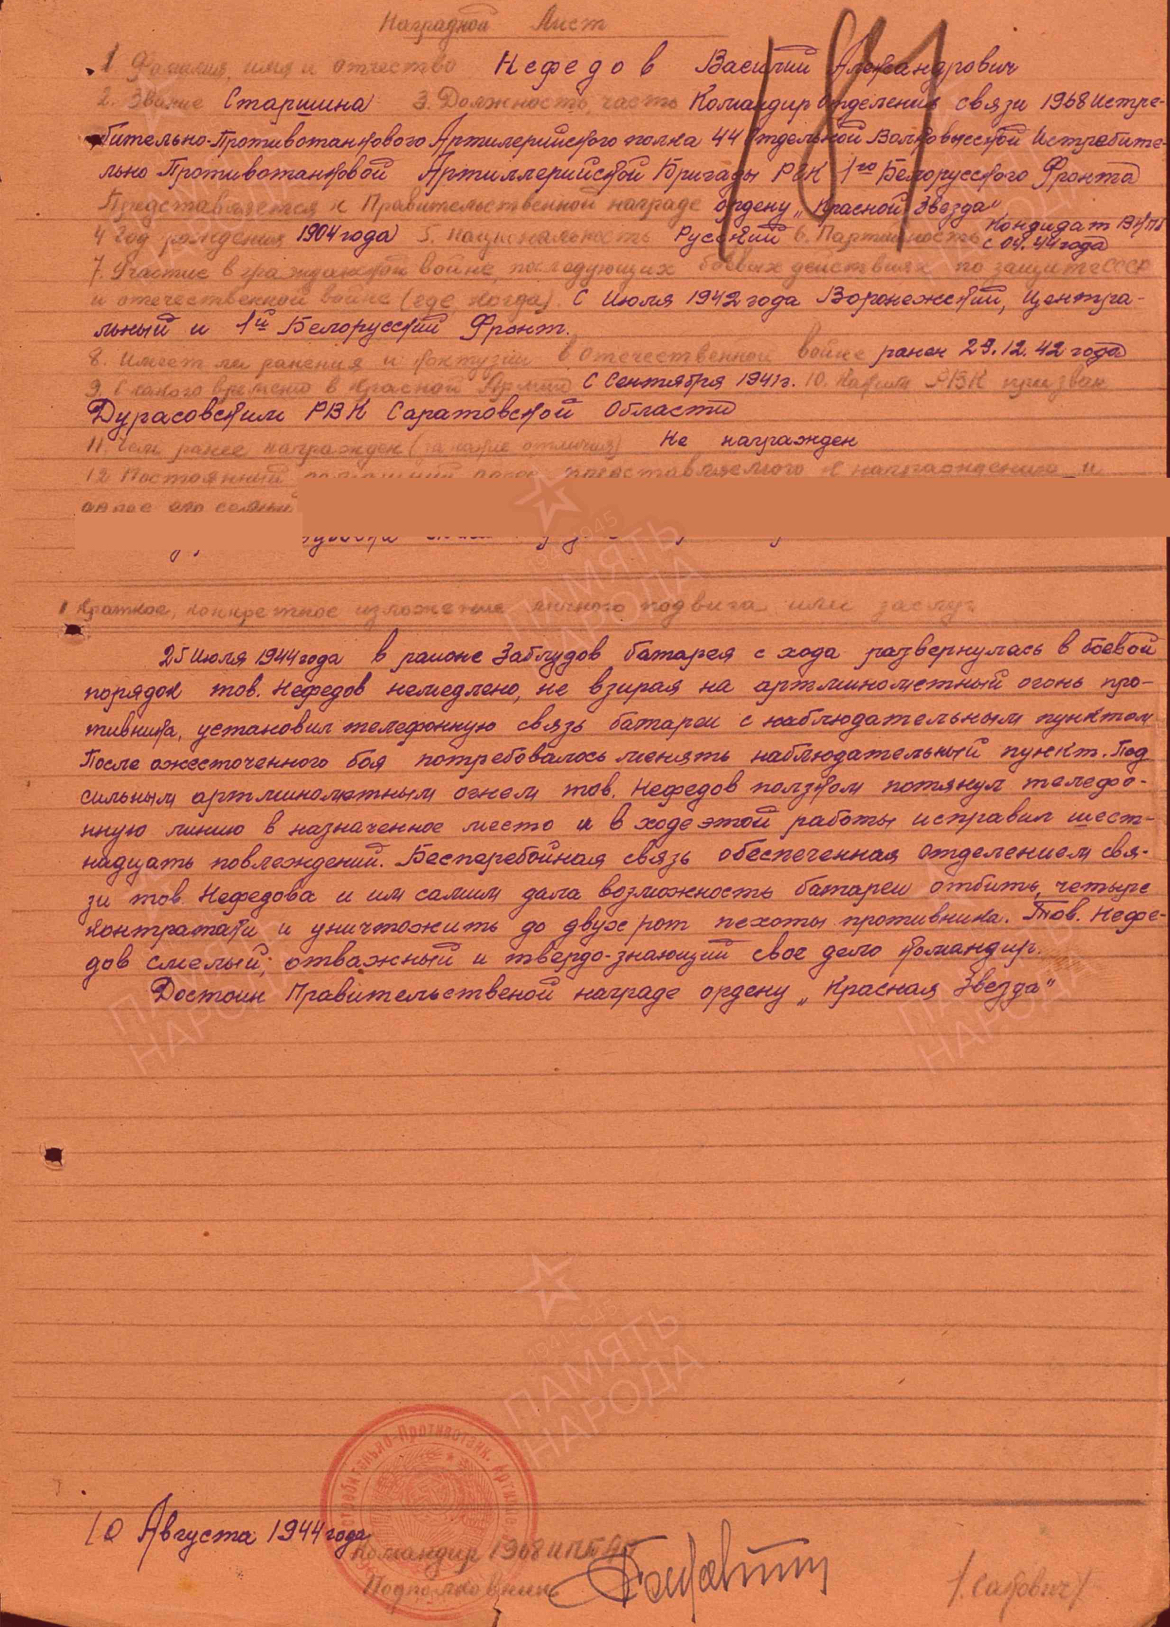 Наградной Лист
1 Фамилия, имя и отчество Нефедов Василий Александрович
2. Звание Старшина 3. Должность, часть Командир отделения связи 1968 Истре-
бительно-Противотанкового Артилерийского полка 44 Отдельной Волковысской Истребите-
льно Противотанковой Артиллерийской Бригады РГК 1го Белорусского Фронта
Представляется к Правительственной награде ордену „Красной Звезда"
4 Год рождения 1904 года 5. Национальность Русский 6. Партийность Кондидат ВКП/б с 04.44 года
7. Участие в гражданской войне, последующих боевых действиях по защите СССР
и отечественной войне (где, когда). С Июля 1942 года Воронежский, Центра-
льный и 1й Белорусский Фронт.
8. Имеет ли ранения и контузии в отечественной войне ранен 29.12.42 года
9. С какого времени в Красной Армии С Сентября 1941 г. 10. Каким РВК призван
Дурасовским РВК Саратовской Области
11. Чем ранее награжден (за какие отличия) Не награжден
12 Постоянный домашний адрес представляемого к награждению и
адрес его семьи
Краткое, конкретное изложение личного подвига или заслуг
25 Июля 1944 года в районе Заблудов батарея с хода развернулась в боевой
порядок тов. Нефедов немедлено, не взирая на артминометный огонь про-
тивника, установил телефонную связь батареи с наблюдательным пунктом
После ожесточенного боя потребовалось менять наблюдательный пункт. Под
сильным артминометным огнем тов. Нефедов ползком потянул телефо-
нную линию в назначенное место и в ходе этой работы исправил шест-
надцать повлеждений. Бесперебойная связь обеспеченная отделением свя-
зи тов. Нефедова и им самим дала возможность батареи отбить четыре
контратаки и уничтожить до двух рот пехоты противника. Тов. Нефе-
дов смелый, отважный и твердо-знающий свое дело командир.
Достоин Правительственой награде ордену „Красная Звезда"
10 Августа 1944 года
Командир 1968 ИПТАП
Подполковник
/Сакович/
181
1941-1945
ПАМЯТЬ
НАРОДА